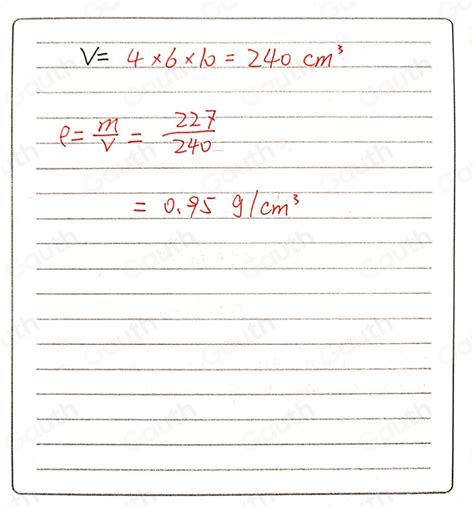 V= 4×6×10 = 240 cm³
ρ= m/V = 227/240
= 0.95 g/cm³